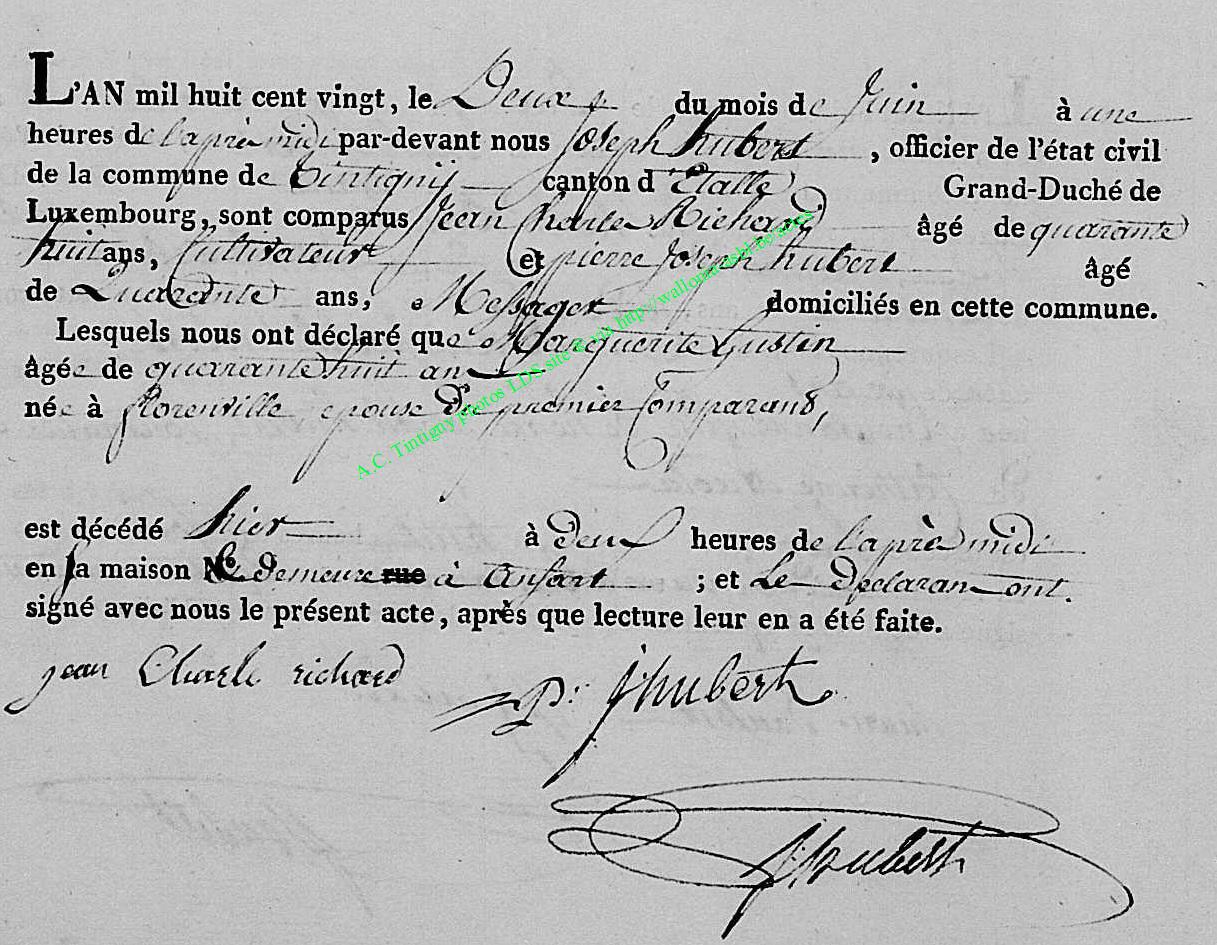 L'AN mil huit cent vingt, le Deux du mois de Juin à une
heures de l'aprè midi par-devant nous Joseph hubert, officier de l'état civil
de la commune de Tintigny canton d'Etalle Grand-Duché de
Luxembourg, sont comparus Jean Charle Richard âgé de quarante
huit ans, Cultivateur et pierre Joseph hubert âgé
de Quarante ans, Messager domiciliés en cette commune.
Lesquels nous ont déclaré que Marguerite Gustin
âgée de quarante huit an
née à florenville epouse du premier Comparans,
A.C. Tintigny photos LDS site via http://wallonia-asbl.be
est décédé hier à deux heures de l'aprè midi
en sa maison demeure rue à Ansart ; et Le Declaran ont
signé avec nous le présent acte, après que lecture leur en a été faite.
jean Charle richard P. J hubert
J hubert